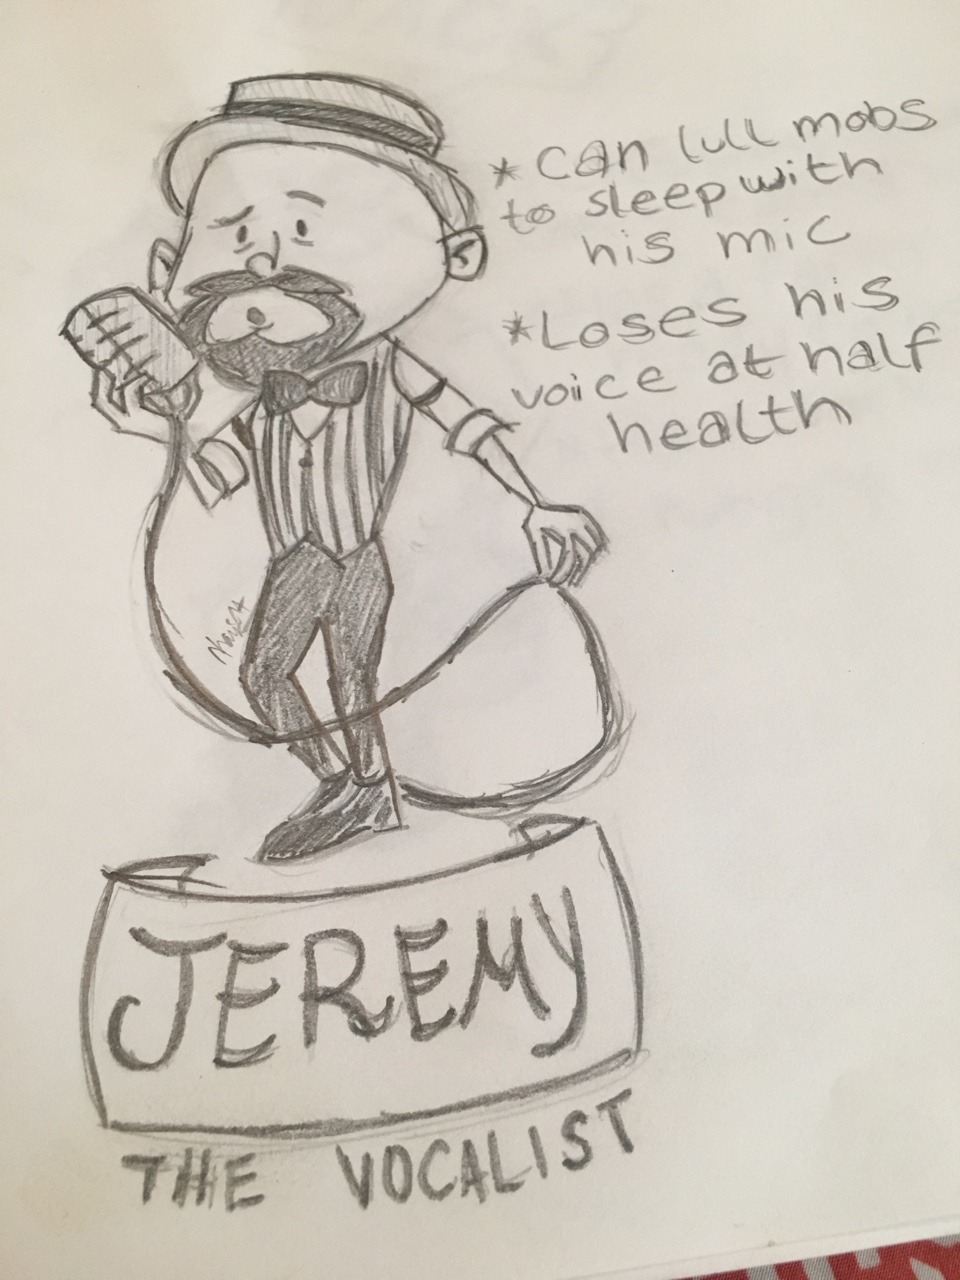 * Can lull mobs
to sleep with
his mic
* Loses his
voice at half
health
JEREMY
THE VOCALIST